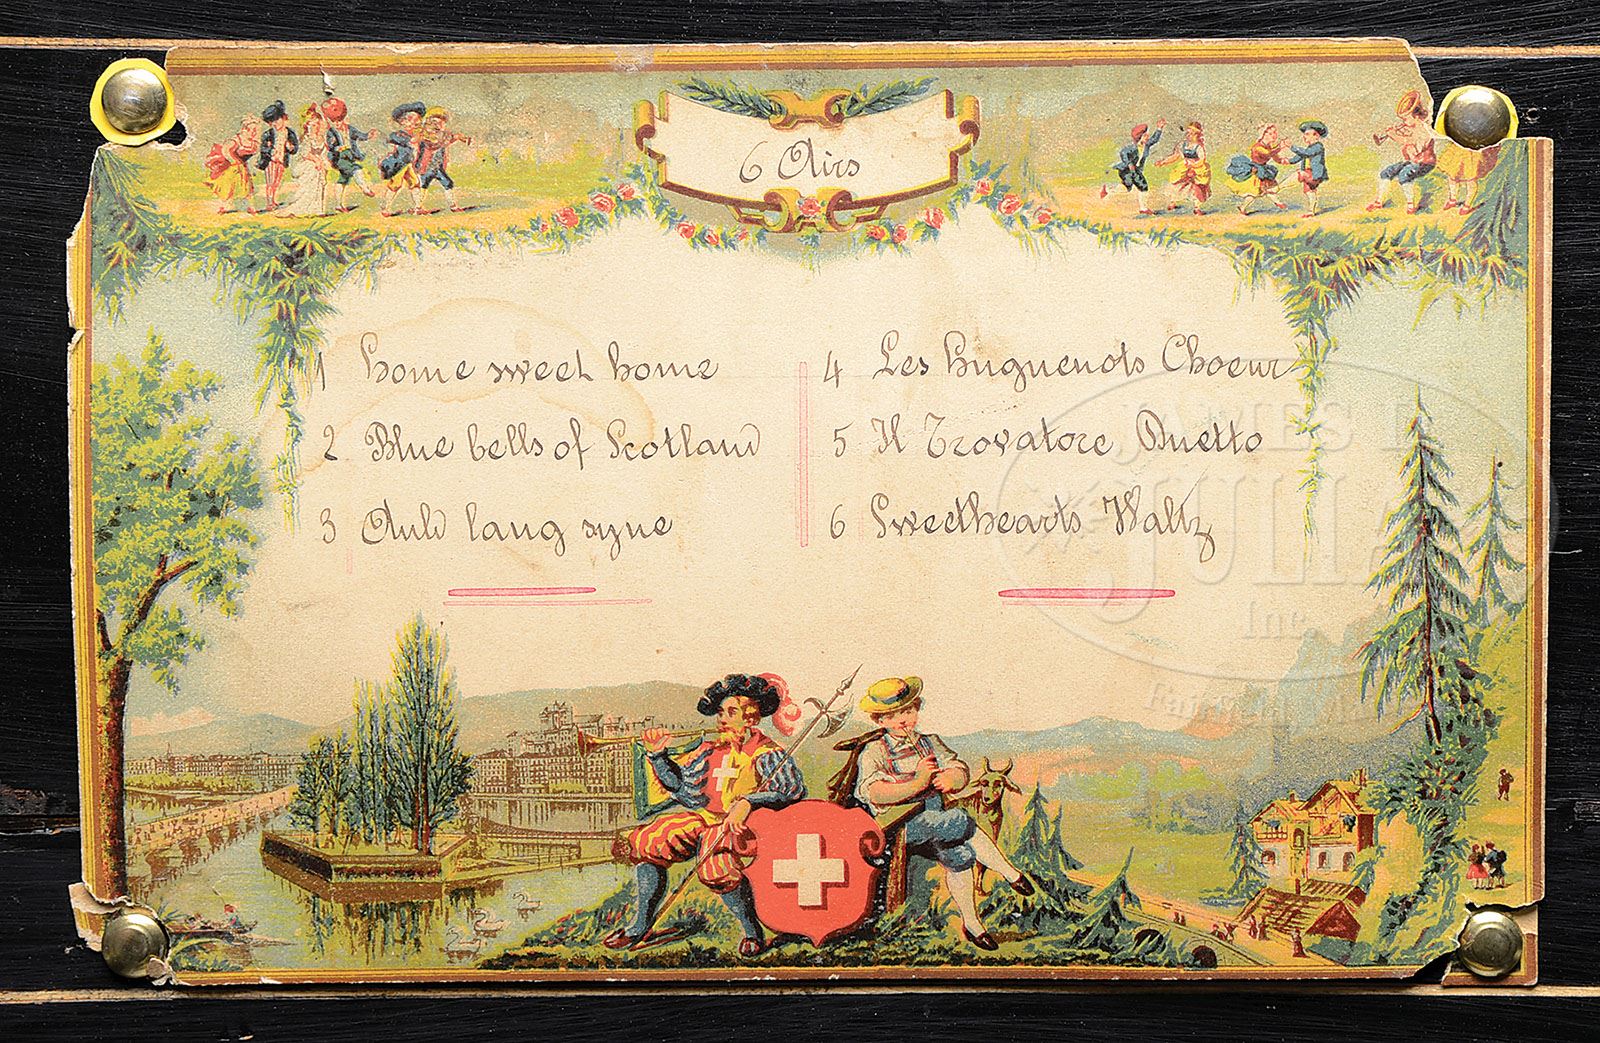 6 Airs
1 Home sweet home
2 Blue bells of Scotland
3 Auld lang syne
4 Les Huguenots Choeur
5 Il Trovatore Duetto
6 Sweethearts Waltz
JAMES D.
JULIA
Inc.